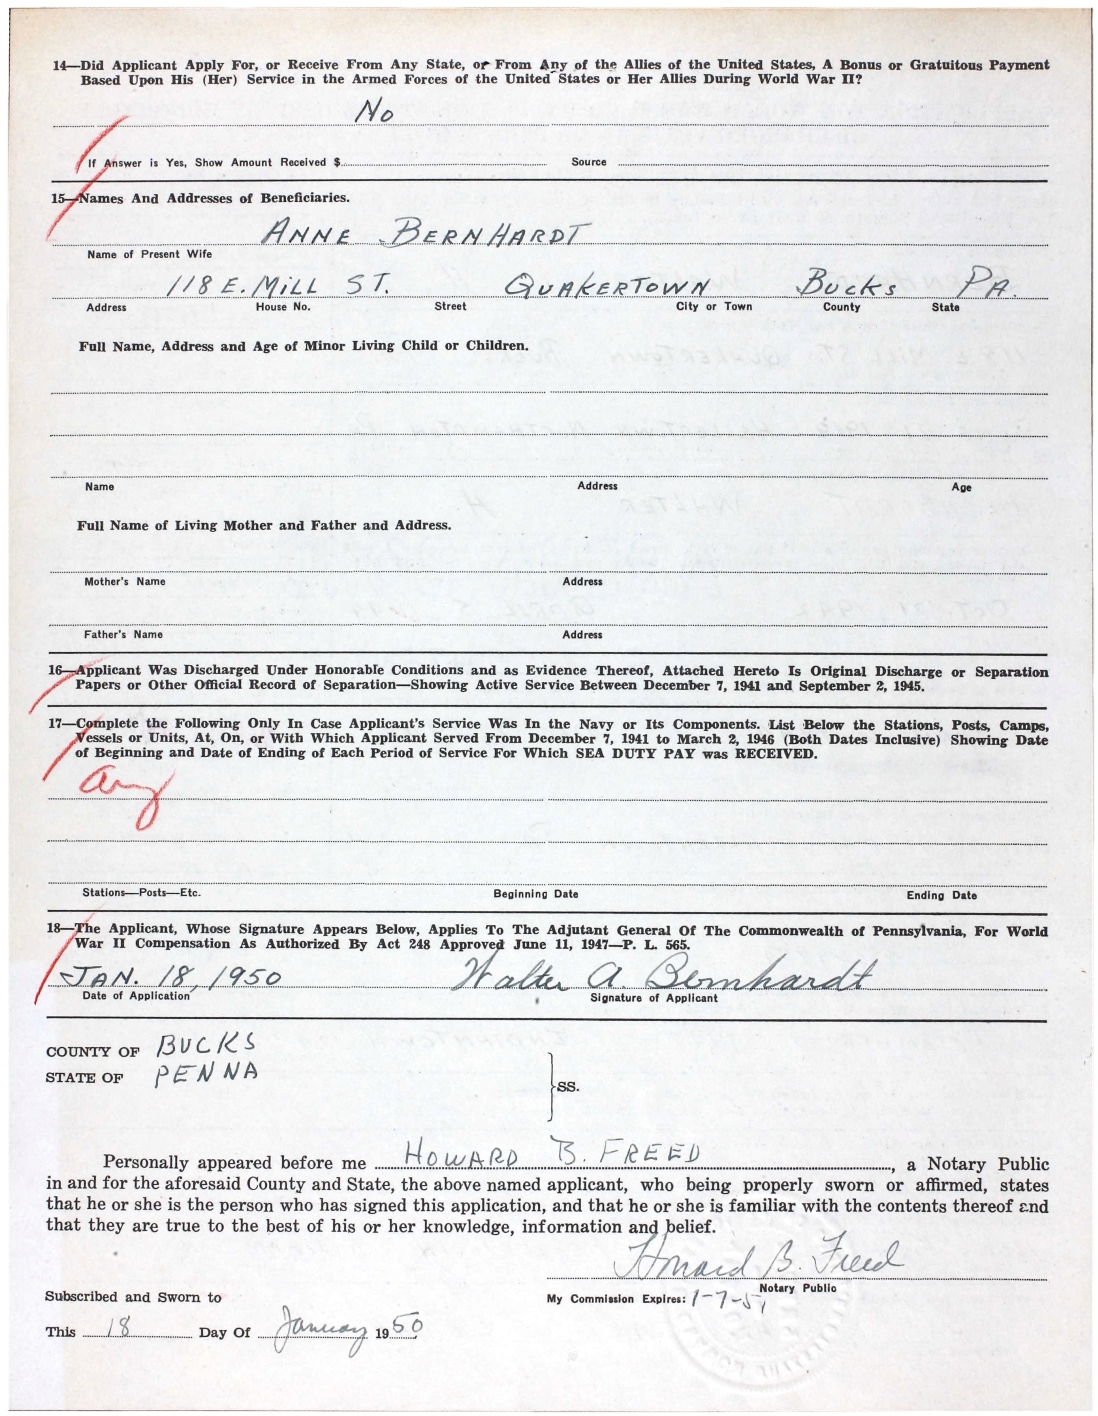 14—Did Applicant Apply For, or Receive From Any State, or From Any of the Allies of the United States, A Bonus or Gratuitous Payment
Based Upon His (Her) Service in the Armed Forces of the United States or Her Allies During World War II?
No
If Answer is Yes, Show Amount Received $ Source
15—Names And Addresses of Beneficiaries.
ANNE BERNHARDT
Name of Present Wife
118 E. MILL ST. QUAKERTOWN BUCKS PA.
Address House No. Street City or Town County State
Full Name, Address and Age of Minor Living Child or Children.
Name Address Age
Full Name of Living Mother and Father and Address.
Mother's Name Address
Father's Name Address
16—Applicant Was Discharged Under Honorable Conditions and as Evidence Thereof, Attached Hereto Is Original Discharge or Separation
Papers or Other Official Record of Separation—Showing Active Service Between December 7, 1941 and September 2, 1945.
17—Complete the Following Only In Case Applicant's Service Was In the Navy or Its Components. List Below the Stations, Posts, Camps,
Vessels or Units, At, On, or With Which Applicant Served From December 7, 1941 to March 2, 1946 (Both Dates Inclusive) Showing Date
of Beginning and Date of Ending of Each Period of Service For Which SEA DUTY PAY was RECEIVED.
Stations—Posts—Etc. Beginning Date Ending Date
18—The Applicant, Whose Signature Appears Below, Applies To The Adjutant General Of The Commonwealth of Pennsylvania, For World
War II Compensation As Authorized By Act 248 Approved June 11, 1947—P. L. 565.
JAN. 18, 1950 Walter A. Bernhardt
Date of Application Signature of Applicant
COUNTY OF BUCKS
STATE OF PENNA
SS.
Personally appeared before me HOWARD B. FREED, a Notary Public
in and for the aforesaid County and State, the above named applicant, who being properly sworn or affirmed, states
that he or she is the person who has signed this application, and that he or she is familiar with the contents thereof and
that they are true to the best of his or her knowledge, information and belief.
Howard B. Freed
Notary Public
Subscribed and Sworn to My Commission Expires: 1-7-51
This 18 Day Of January 1950